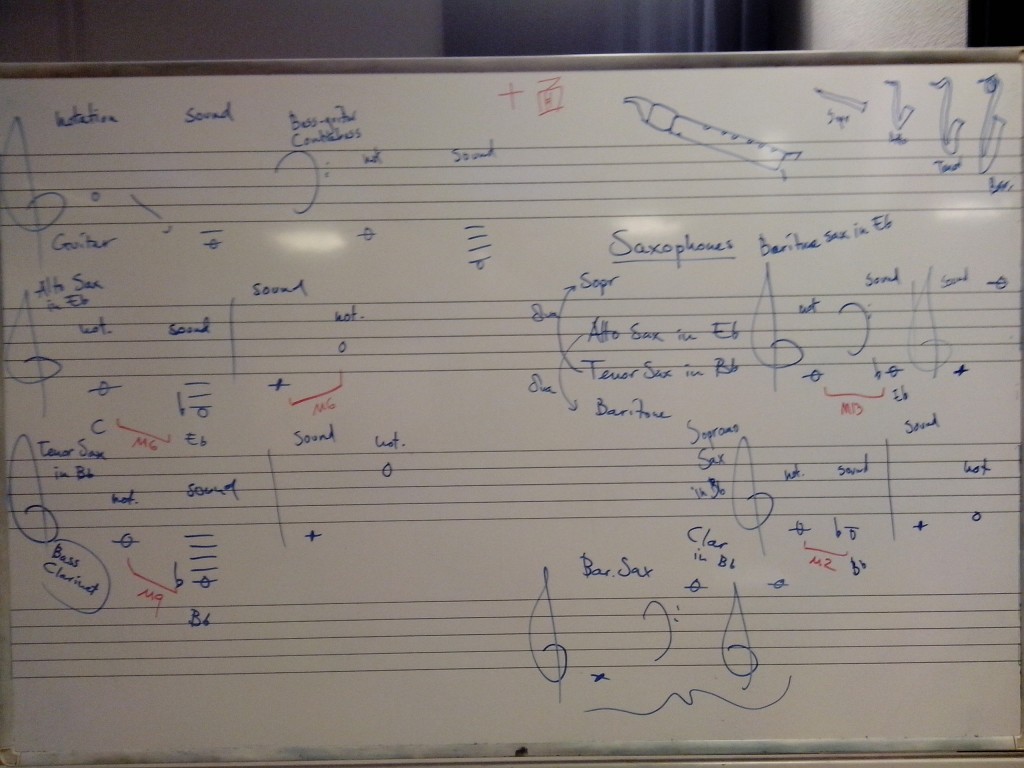 Notation
Sound
Bass-guitar
Contrabass
not
Sound
Guitar
Sopr
Alto
Tenor
Bar.
Saxophones
Sopr
8va
Alto Sax in Eb
Tenor Sax in Bb
8va
Baritone
Baritone sax in Eb
not
sound
sound
M13
Eb
Alto Sax
in Eb
not.
sound
sound
not.
C
M6
Eb
M6
Tenor Sax
in Bb
not.
sound
Sound
not.
Bass
Clarinet
M9
Bb
Soprano
Sax
in Bb
not.
sound
sound
not
Clar
in Bb
M2
Bb
Bar. Sax